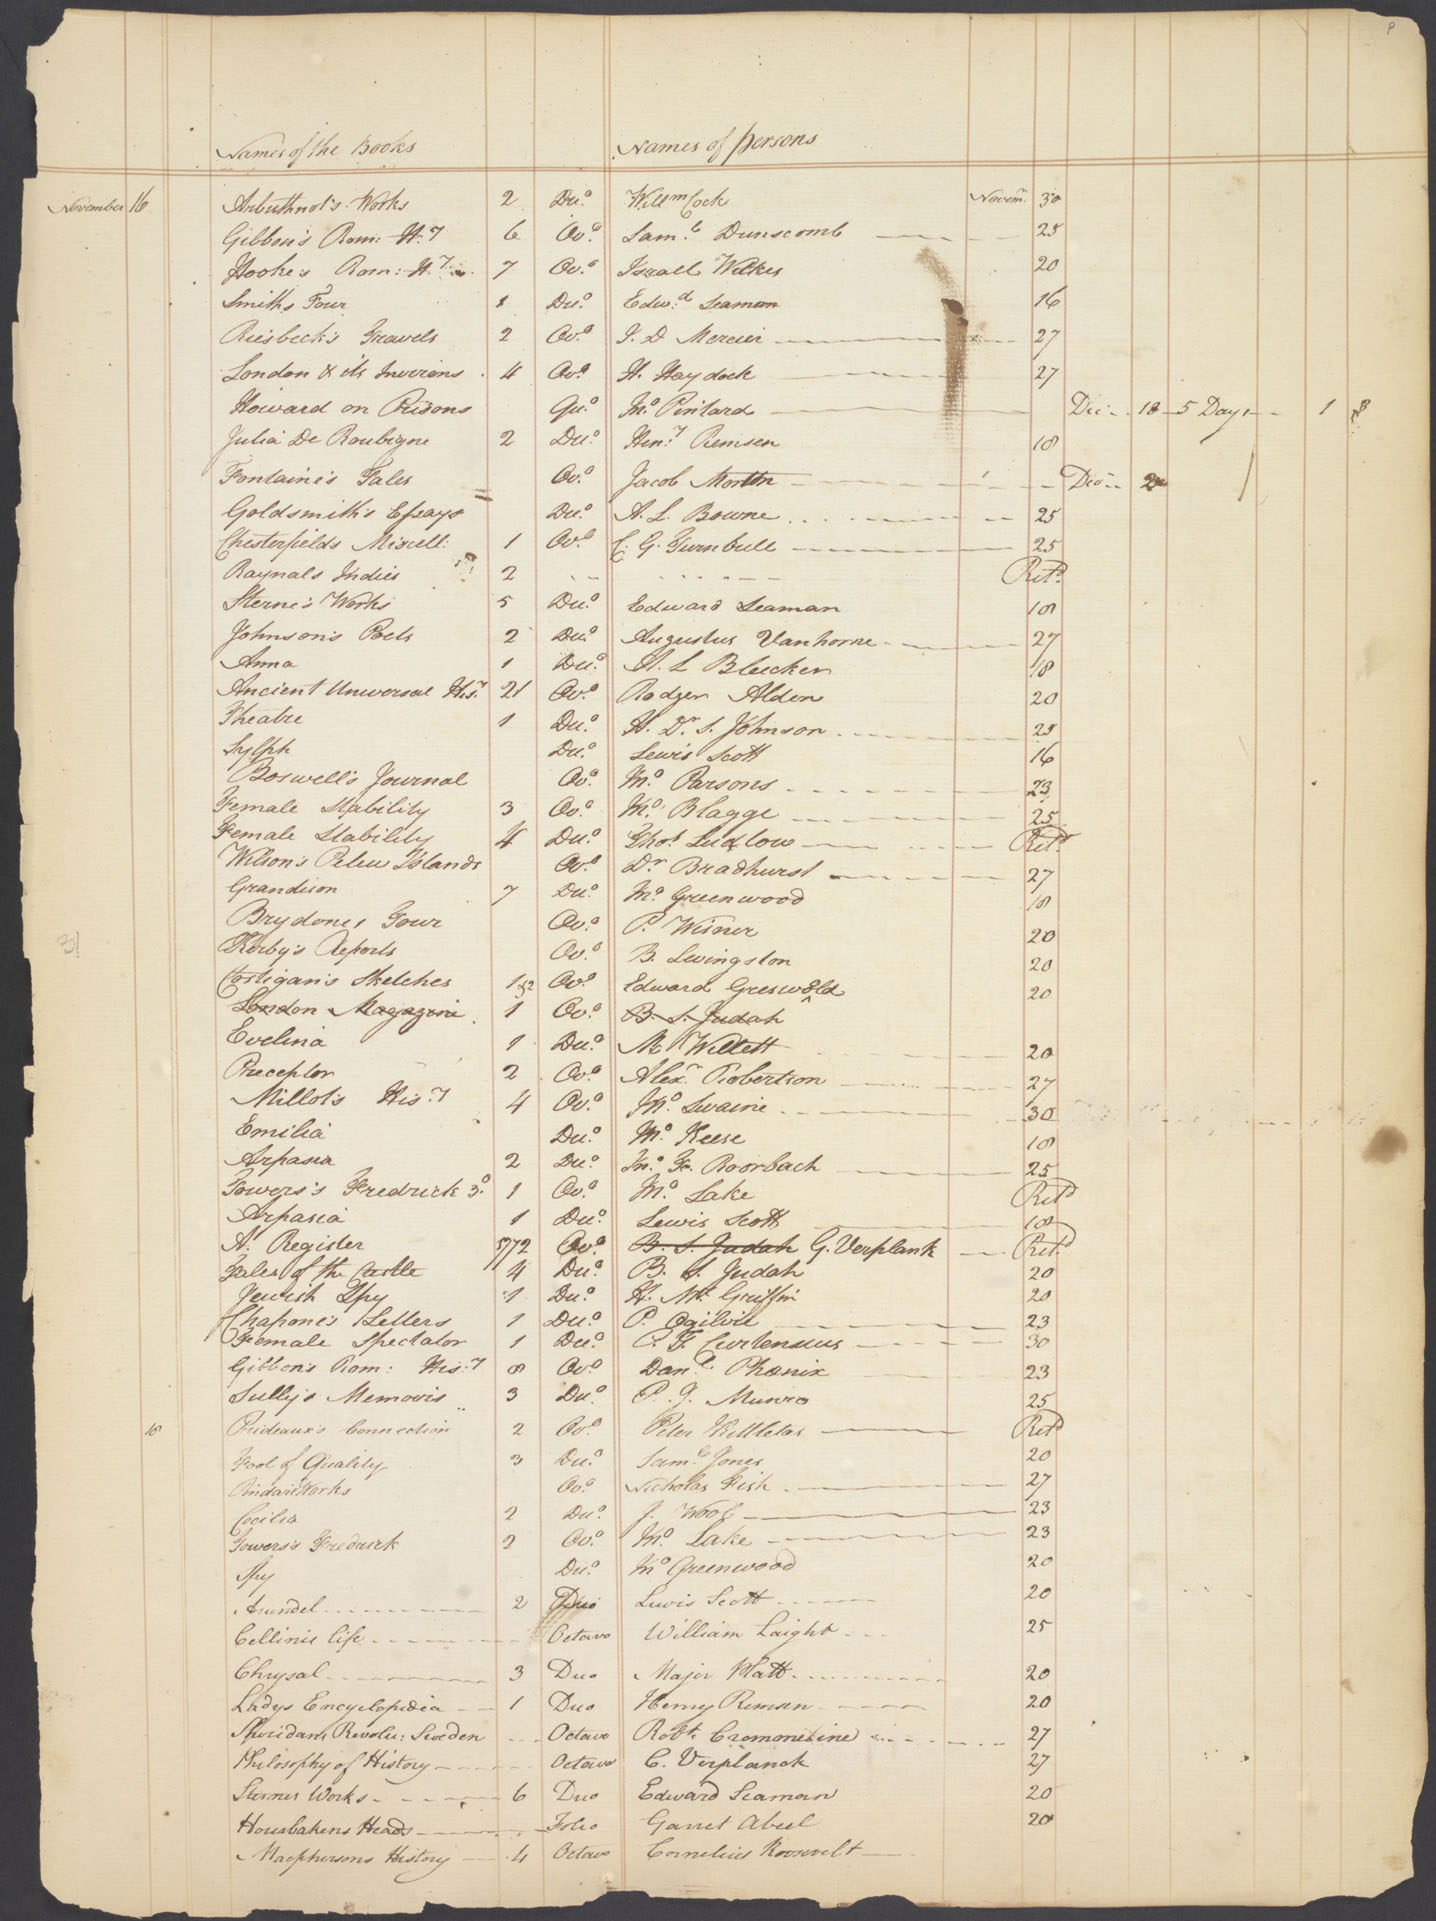 Names of the Books Names of persons
November 16 Arbuthnot's Works 2 Du.o Will.m Cock Novem.r 30
Gibbon's Rom: H.y 6 Ov.o Sam.l Dunscomb 25
Hooke's Rom: H.y 7 Ov.o Israel Wilkes 20
Smiths Tour 1 Du.o Edw.d Seaman 16
Riesbeck's Travels 2 Ov.o J. D Mercier 27
London & its Invirons 4 Ov.o H. Haydock 27
Howard on Prisons Qu.o Jn.o Pintard Dec 18 5 Days 1 8
Julia De Roubigne 2 Du.o Hen.y Remsen 18
Fontaine's Tales Ov.o Jacob Morttn Dec 2
Goldsmith's Essays Du.o A. L. Bowne 25
Chesterfields Miscell: 1 Ov.o C. G. Turnbull 25
Raynals Indies 2 Ret.d
Sterne's Works 5 Du.o Edward Seaman 18
Johnson's Poets 2 Du.o Augustus Vanhorne 27
Anna 1 Du.o A. L Bleecker 18
Ancient Universal His.y 21 Ov.o Rodger Alden 20
Theatre 1 Du.o H. Dr. S. Johnson 25
Sylph Du.o Lewis Scott 16
Boswell's Journal Ov.o Mo. Parsons 23
Female Stability 3 Ov.o Mo. Blagge 25
Female Stability 4 Du.o Tho.s Ludlow Ret.d
Wilson's Pelew Islands Ov.o Dr Bradhurst 27
Grandison 7 Du.o Jn.o Greenwood 18
Brydones Tour Ov.o P. Wisner 20
Kirby's Reports Ov.o B. Livingston 20
Costigan's Sketches 1 & 2 Ov.o Edward Greswold 20
London Magazine 1 Ov.o B. S. Judah
Evelina 1 Du.o M Willett 20
Preceptor 2 Ov.o Alex.r Robertson 27
Millot's His.y 4 Ov.o Jn.o Swaine 30
Emilia Du.o Jn.o Keese 18
Arpasia 2 Du.o Jn.o Fr. Roorbach 25
Towers's Fredrick 3.d 1 Ov.o Jn.o Lake Ret.d
Arpasia 1 Du.o Lewis Scott 18
A: Register 1772 Ov.o B. S. Judah G. Verplank Ret.d
Tales of the Castle 4 Du.o B. S. Judah 20
Jewish Spy 1 Du.o H. Mc Griffin 20
Chapone's Letters 1 Du.o P. Ogilvie 23
Female Spectator 1 Du.o P. T. Curtenius 30
Gibbon's Rom: His:y 8 Ov.o Dan.l Phœnix 23
Sully's Memoirs 3 Du.o P. J. Munro 25
18 Prideaux's Connection 2 Ov.o Peter Kettletas Ret.d
Fool of Quality 3 Du.o Sam.l Jones 20
Pindars Works Ov.o Nicholas Fish 27
Cecilia 2 Du.o J. Wool 23
Towers's Fredrick 2 Ov.o Jn.o Lake 23
Spy Du.o Jn.o Greenwood 20
Arundel 2 Duo Lewis Scott 20
Cellinis life Octavo William Laight 25
Chrysal 3 Duo Major Platt 20
Ladys Encyclopedia 1 Duo Henry Remsen 20
Sheridans Revolu: Sweden Octavo Robt. Crommeline 27
Philosophy of History Octavo C. Verplanck 27
Sternes Works 6 Duo Edward Seaman 20
Housbakens Heads Folio Garret Abeel 20
Macphersons History 4 Octavo Cornelius Roosevelt